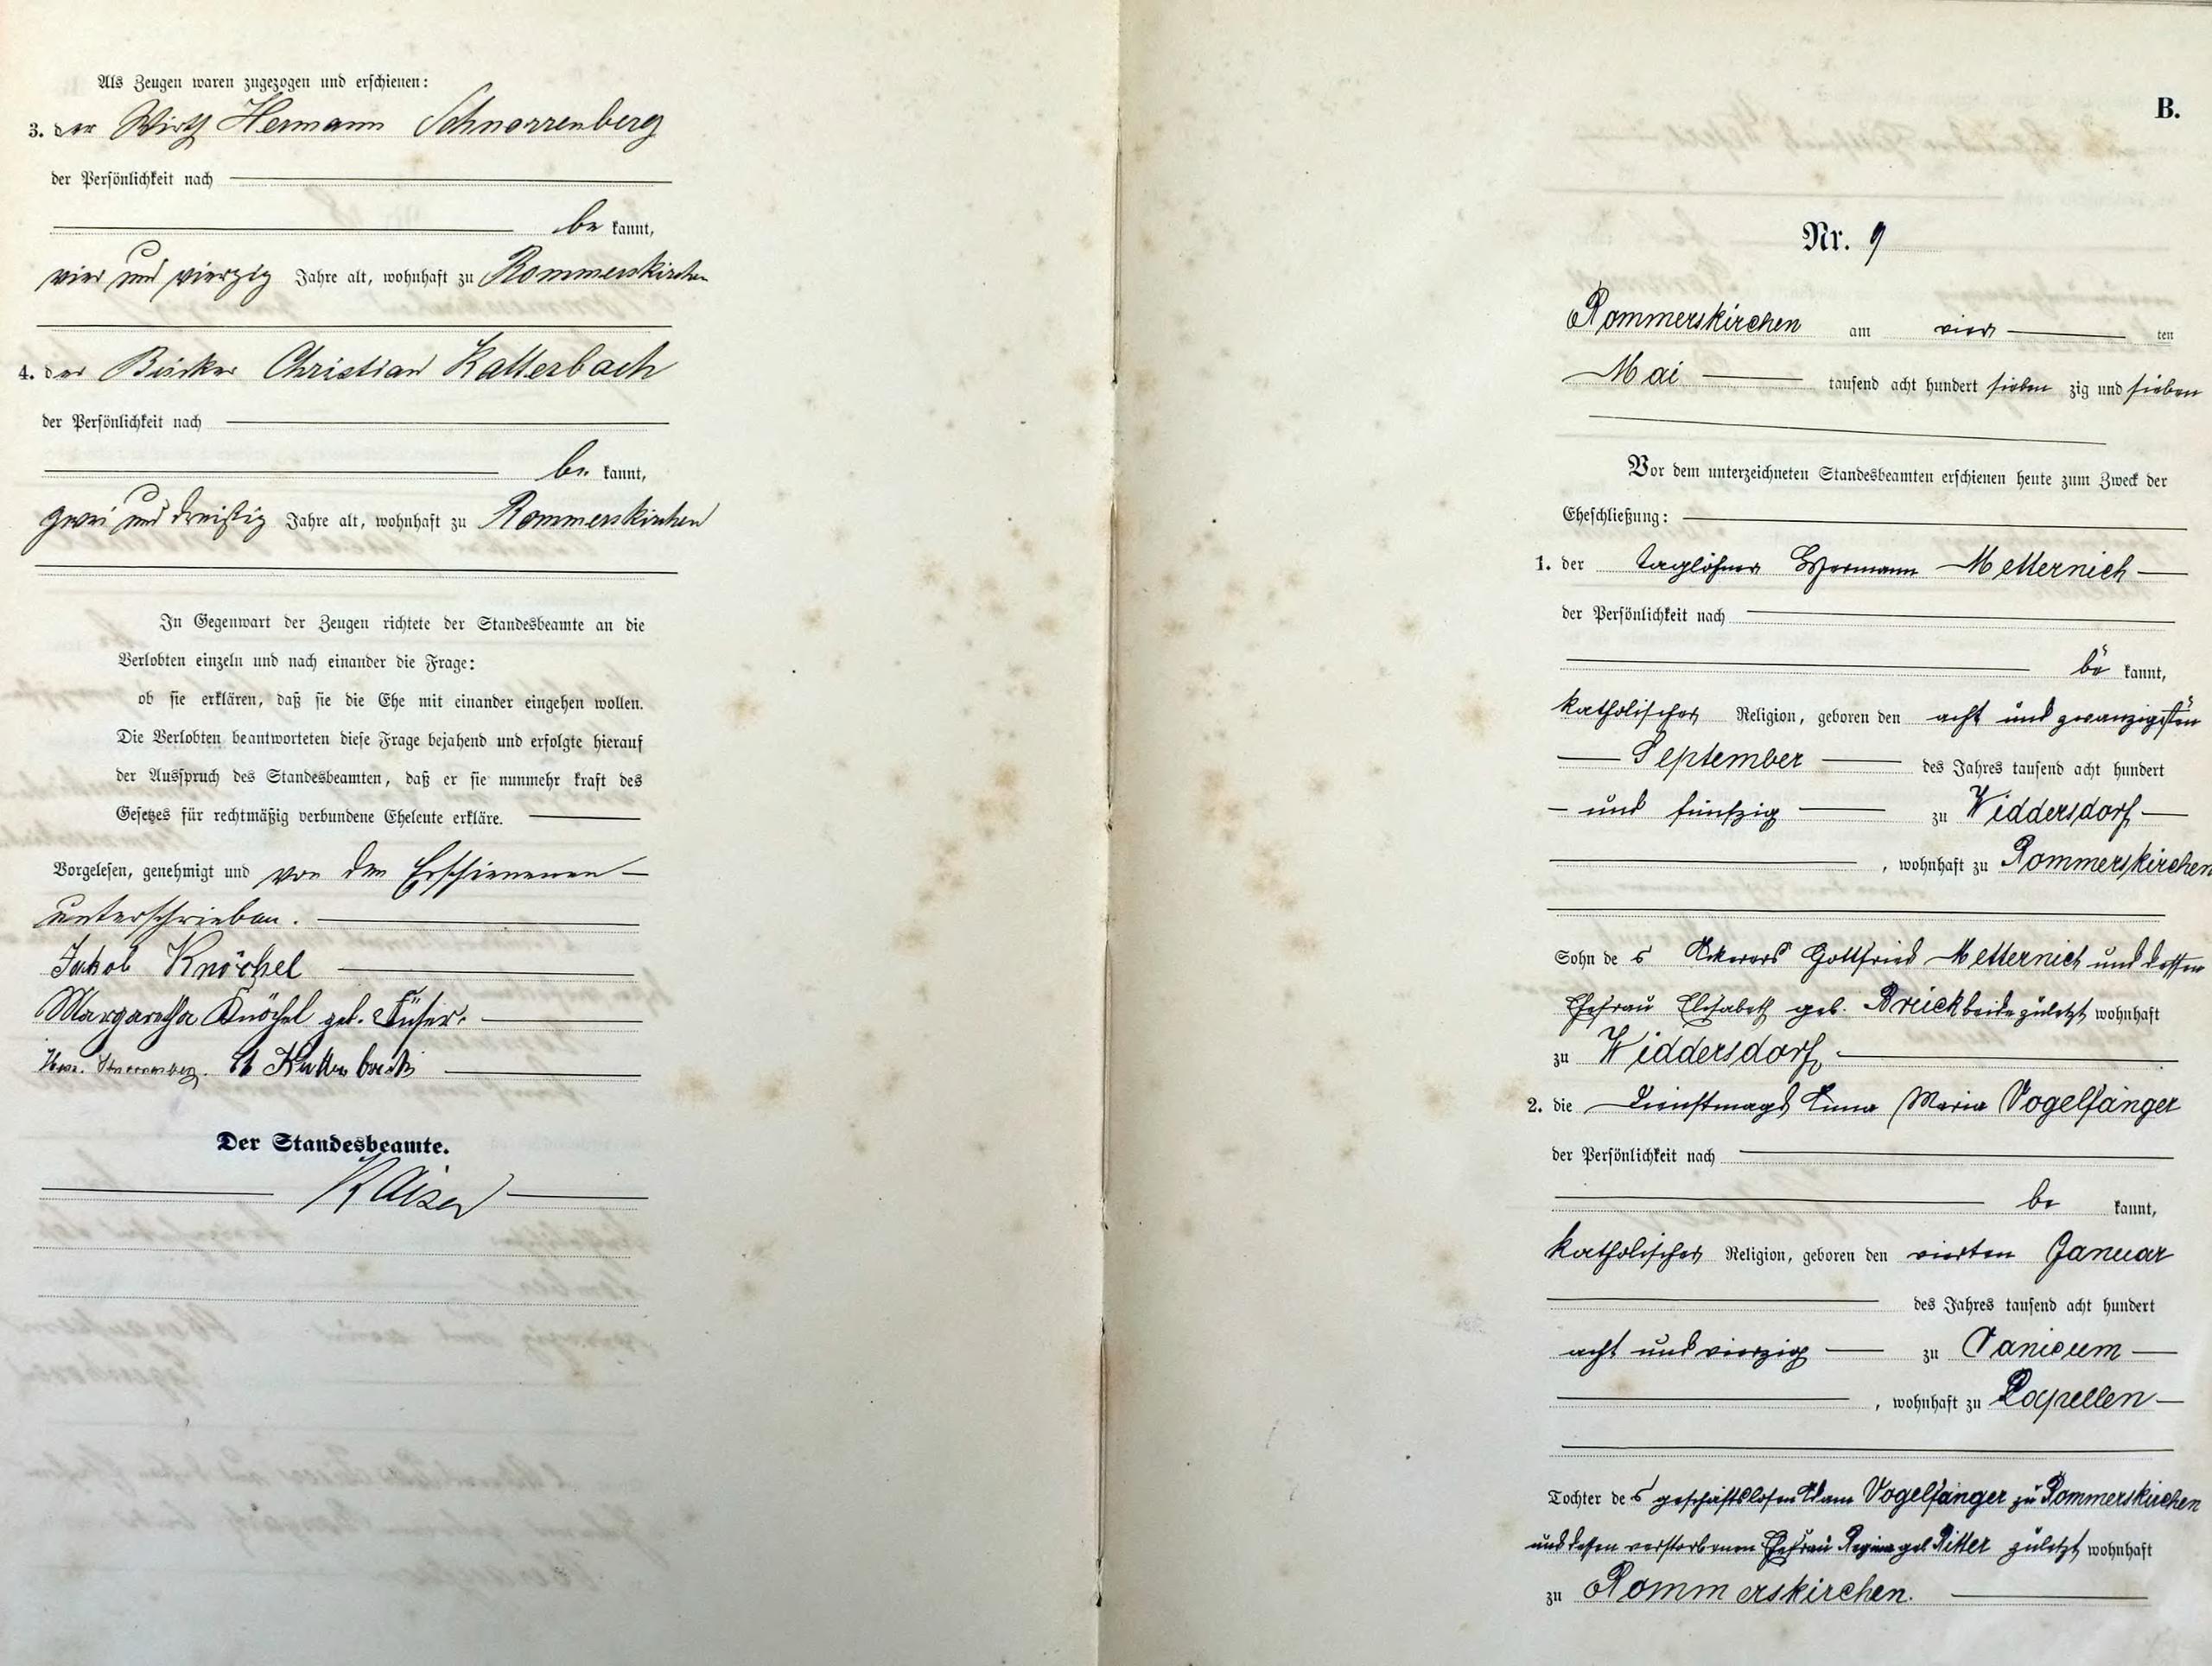 Als Zeugen waren zugezogen und erschienen:
3. der Wirth Hermann Schnorrenberg
der Persönlichkeit nach
be kannt,
vier und vierzig Jahre alt, wohnhaft zu Rommerskirchen
4. der Bäcker Christian Katterbach
der Persönlichkeit nach
be kannt,
zwei und dreißig Jahre alt, wohnhaft zu Rommerskirchen
In Gegenwart der Zeugen richtete der Standesbeamte an die
Verlobten einzeln und nach einander die Frage:
ob sie erklären, daß sie die Ehe mit einander eingehen wollen.
Die Verlobten beantworteten diese Frage bejahend und erfolgte hierauf
der Ausspruch des Standesbeamten, daß er sie nunmehr kraft des
Gesetzes für rechtmäßig verbundene Eheleute erkläre.
Vorgelesen, genehmigt und von den Erschienenen
unterschrieben.
Jakob Knöchel
Margaretha Knöchel geb. Füser
Herm. Schnorrenberg. Ch Katterbach
Der Standesbeamte.
Kaiser
B.
Nr. 9
Rommerskirchen am vier ten
Mai tausend acht hundert sieben zig und sieben
Vor dem unterzeichneten Standesbeamten erschienen heute zum Zweck der
Eheschließung:
1. der Taglöhner Hermann Metternich
der Persönlichkeit nach
be kannt,
katholischer Religion, geboren den acht und zwanzigsten
September des Jahres tausend acht hundert
und fünfzig zu Widdersdorf
, wohnhaft zu Rommerskirchen
Sohn de s Ackerers Gottfried Metternich und dessen
Ehefrau Elisabeth geb. Breuck beide zuletzt wohnhaft
zu Widdersdorf
2. die Dienstmagd Anna Maria Vogelfänger
der Persönlichkeit nach
be kannt,
katholischer Religion, geboren den vierten Januar
des Jahres tausend acht hundert
acht und vierzig zu Vanicum
, wohnhaft zu Kapellen
Tochter de s geschäftslosen Adam Vogelfänger zu Rommerskirchen
und dessen verstorbenen Ehefrau Regina geb Ritter zuletzt wohnhaft
zu Rommerskirchen.